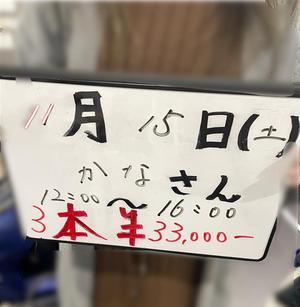 11月15日(土)
かなさん
12:00〜16:00
3本半33,000-